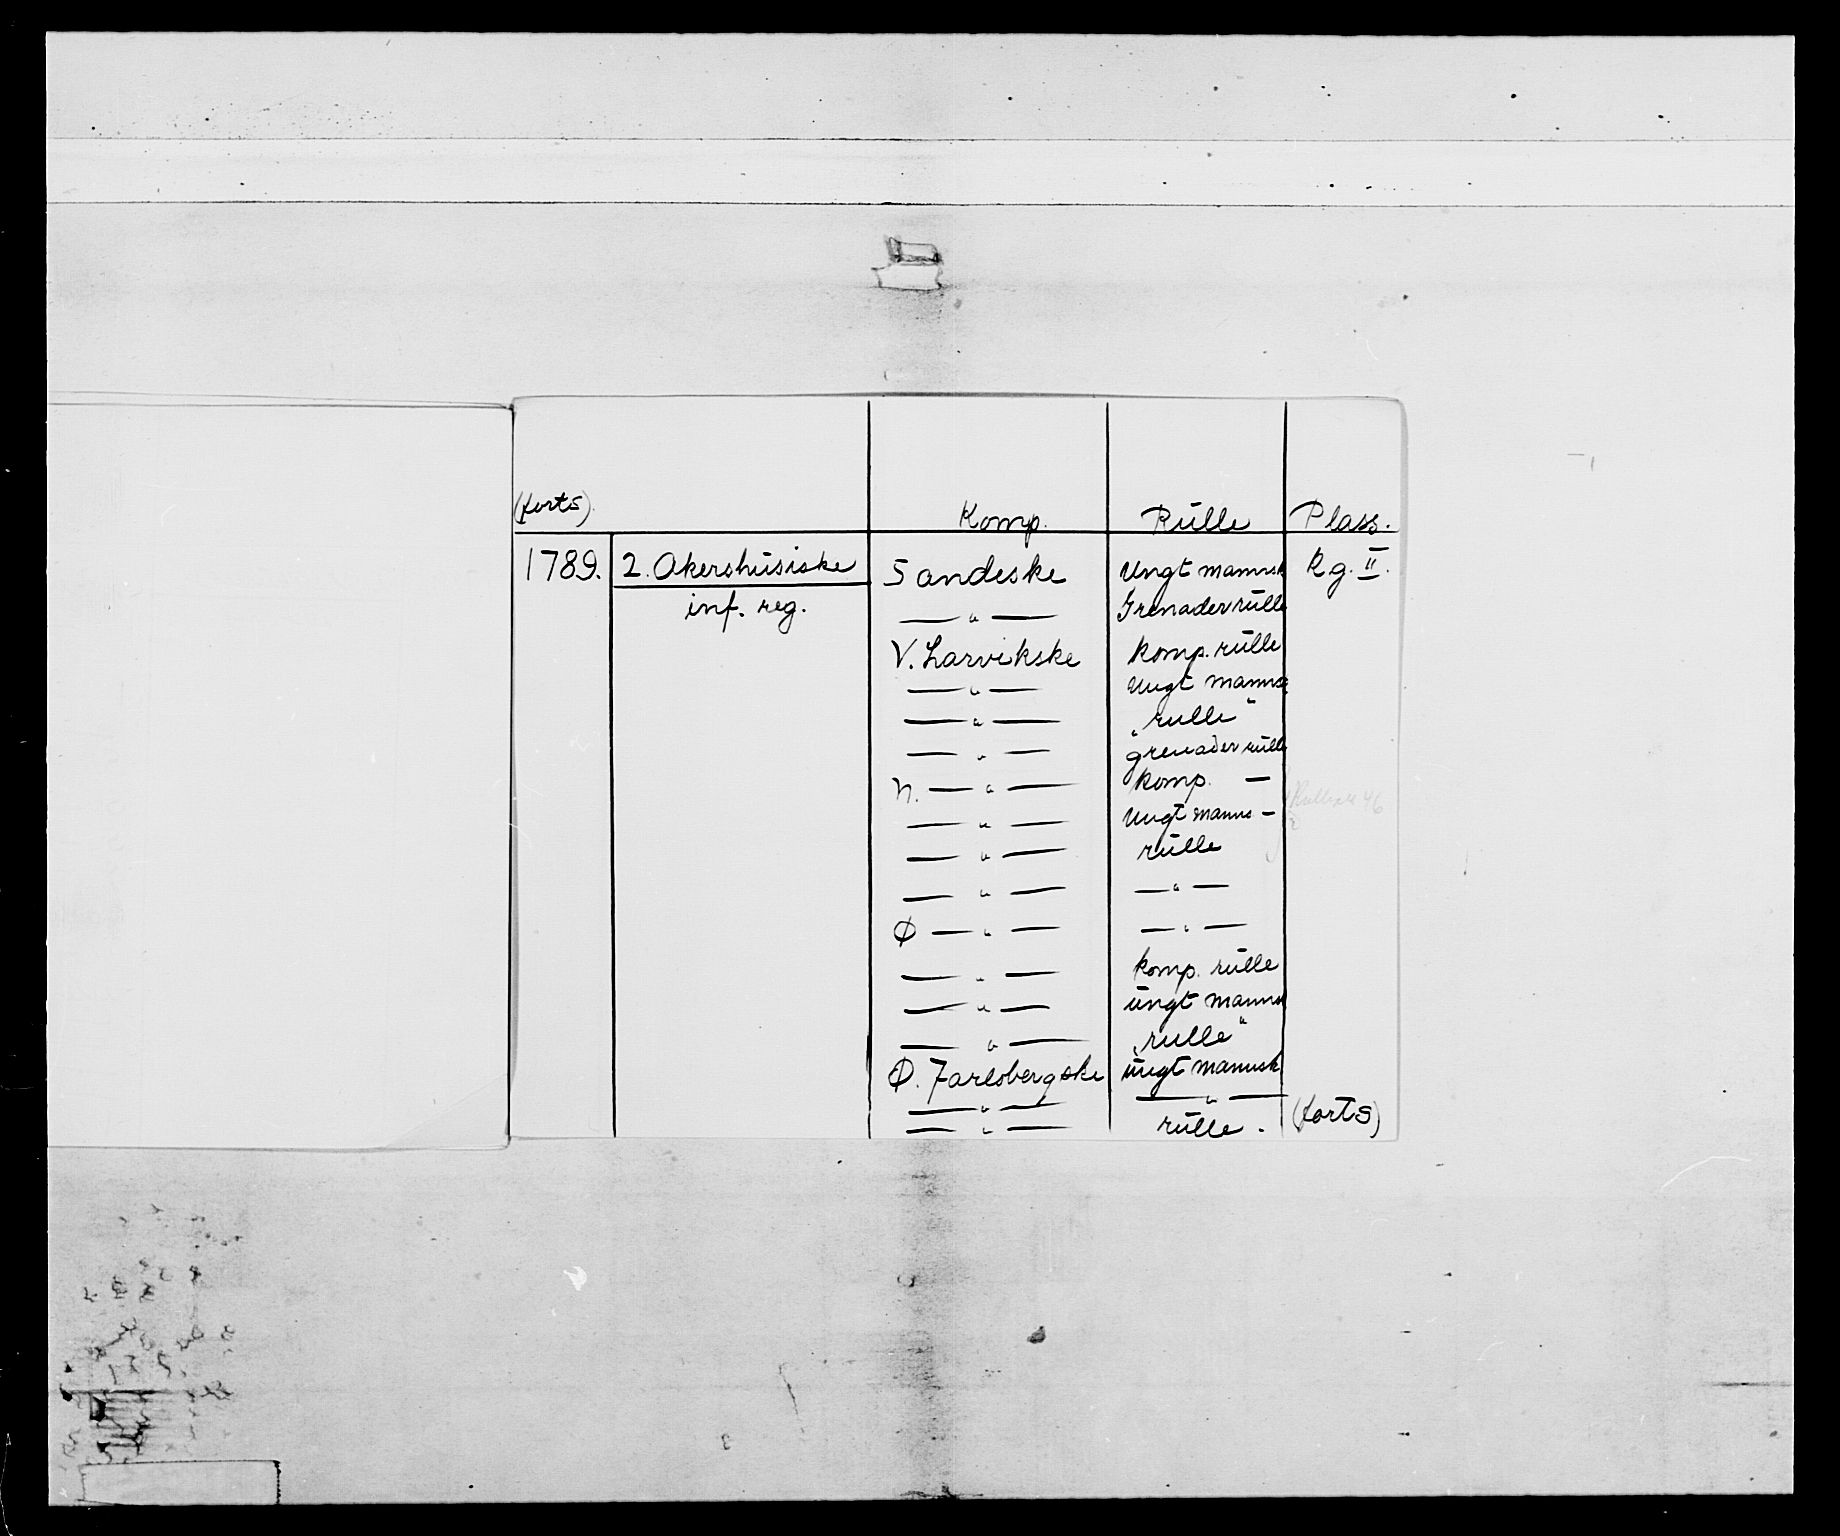 (forts).
Komp. Rulle Plass.
1789. 2. Akershusiske Sandeske Ungt mannsk R.g. II.
inf. reg. — " — Grenader rulle
V. Larvikske komp. rulle
— " — Ungt manns
— " — „rulle"
— " — grenader rulle
N. — " — komp. —
— " — Ungt manns —
— " — rulle
— " — — " —
Ø — " — — " —
— " — komp. rulle
— " — ungt manns
— " — „rulle"
Ø. Jarlsbergske ungt mannsk.
— " — — " —
— " — rulle. (forts)